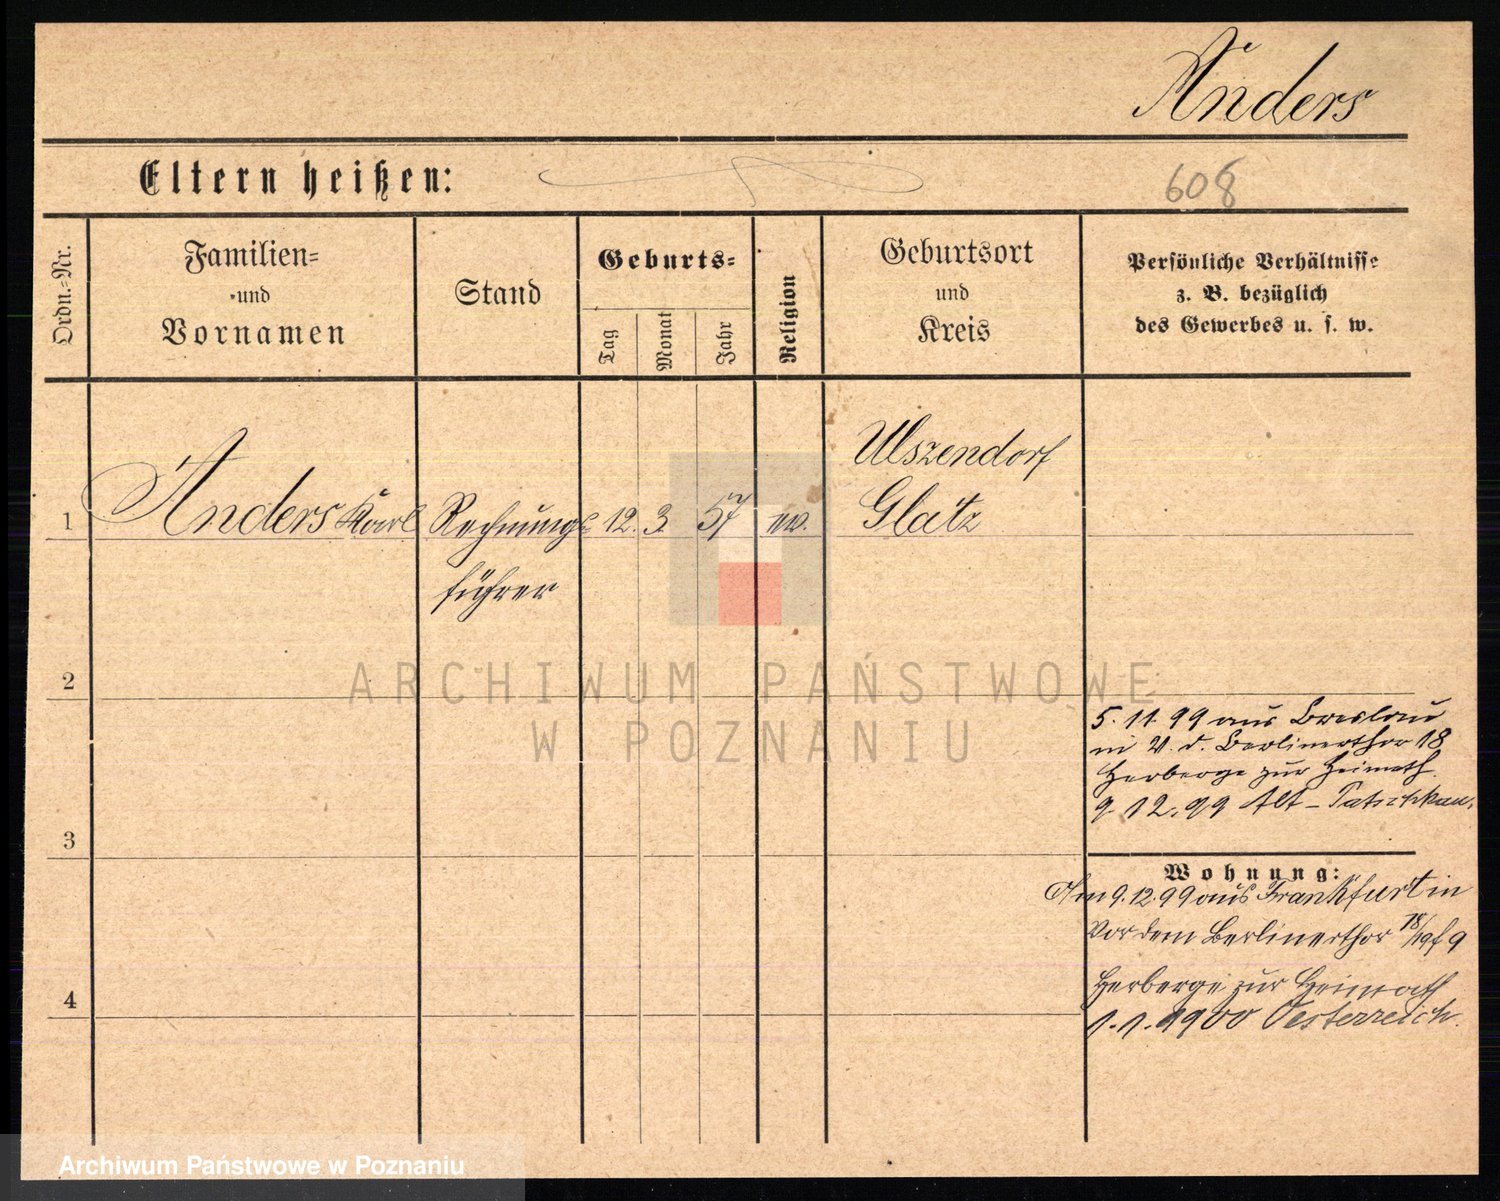 Anders
Eltern heißen:
608
Ordn.=Nr.
Familien=
und
Vornamen
Stand
Geburts=
Tag
Monat
Jahr
Religion
Geburtsort
und
Kreis
Persönliche Verhältnisse
z. B. bezüglich
des Gewerbes u. s. w.
1
Anders Karl
Rechnungs
führer
12. 3. 57
ev.
Ulszendorf
Glatz
2
5. 11. 99 aus Breslau
in V. d. Berlinerthor 18
Herberge zur Heimath.
9. 12. 99 Alt-Patschkau.
3
Wohnung:
Am 9. 12. 99 aus Frankfurt in
Vor dem Berlinerthor 18/19
Herberge zur Heimath
1. 1. 1900 Oesterreich.
4
ARCHIWUM PAŃSTWOWE
W POZNANIU
Archiwum Państwowe w Poznaniu